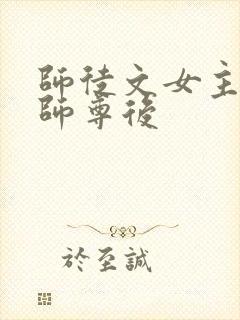 師徒文女主
師尊後
於至誠